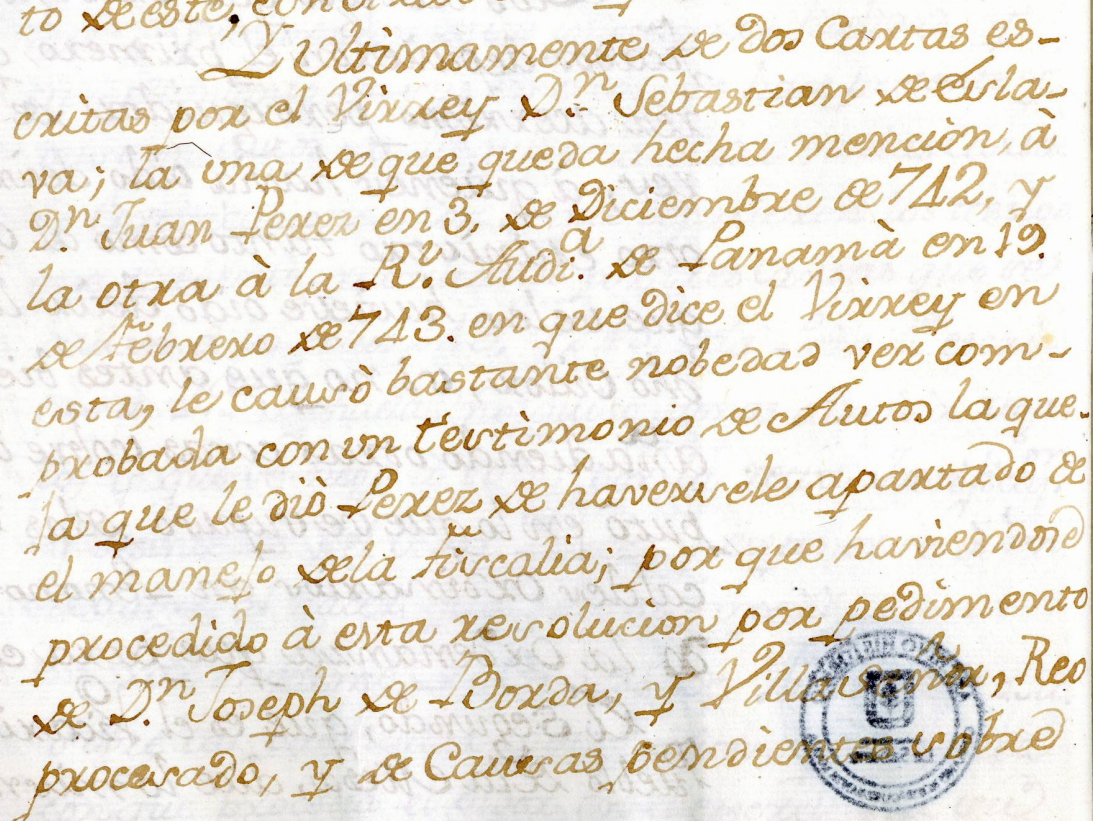 to de este,
Y Ultimamente de dos Cartas es-
critas por el Virrey D.n Sebastian de Esla-
va; la una de que queda hecha menciòn, à
D.n Juan Perez en 3. de Diciembre de 742, y
la otra à la R.l Audi.a de Panamà en 19.
de Febrero de 743. en que dice el Virrey en
esta, le causò bastante nobedad ver com-
probada con un testimonio de Autos la que-
ja que le diò Perez de haversele apartado de
el manejo dela fiscalia; por que haviendose
procedido à esta resolucion por pedimento
de D.n Joseph de Borda, y Reo
procesado, y de Causas pendientes sobre